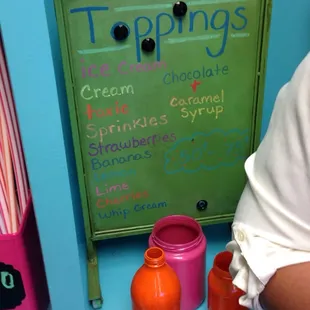 Toppings
Ice Cream
Cream
Sprinkles
Strawberries
Bananas
Lime
Whip Cream
Chocolate
+
Caramel
Syrup